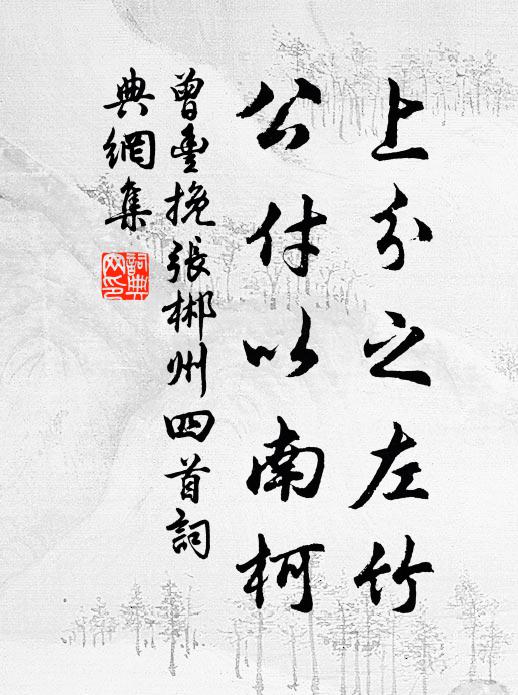 上分之左竹
公付以南柯
曾豐挽張郴州四首詞
典網集
詞典
网印